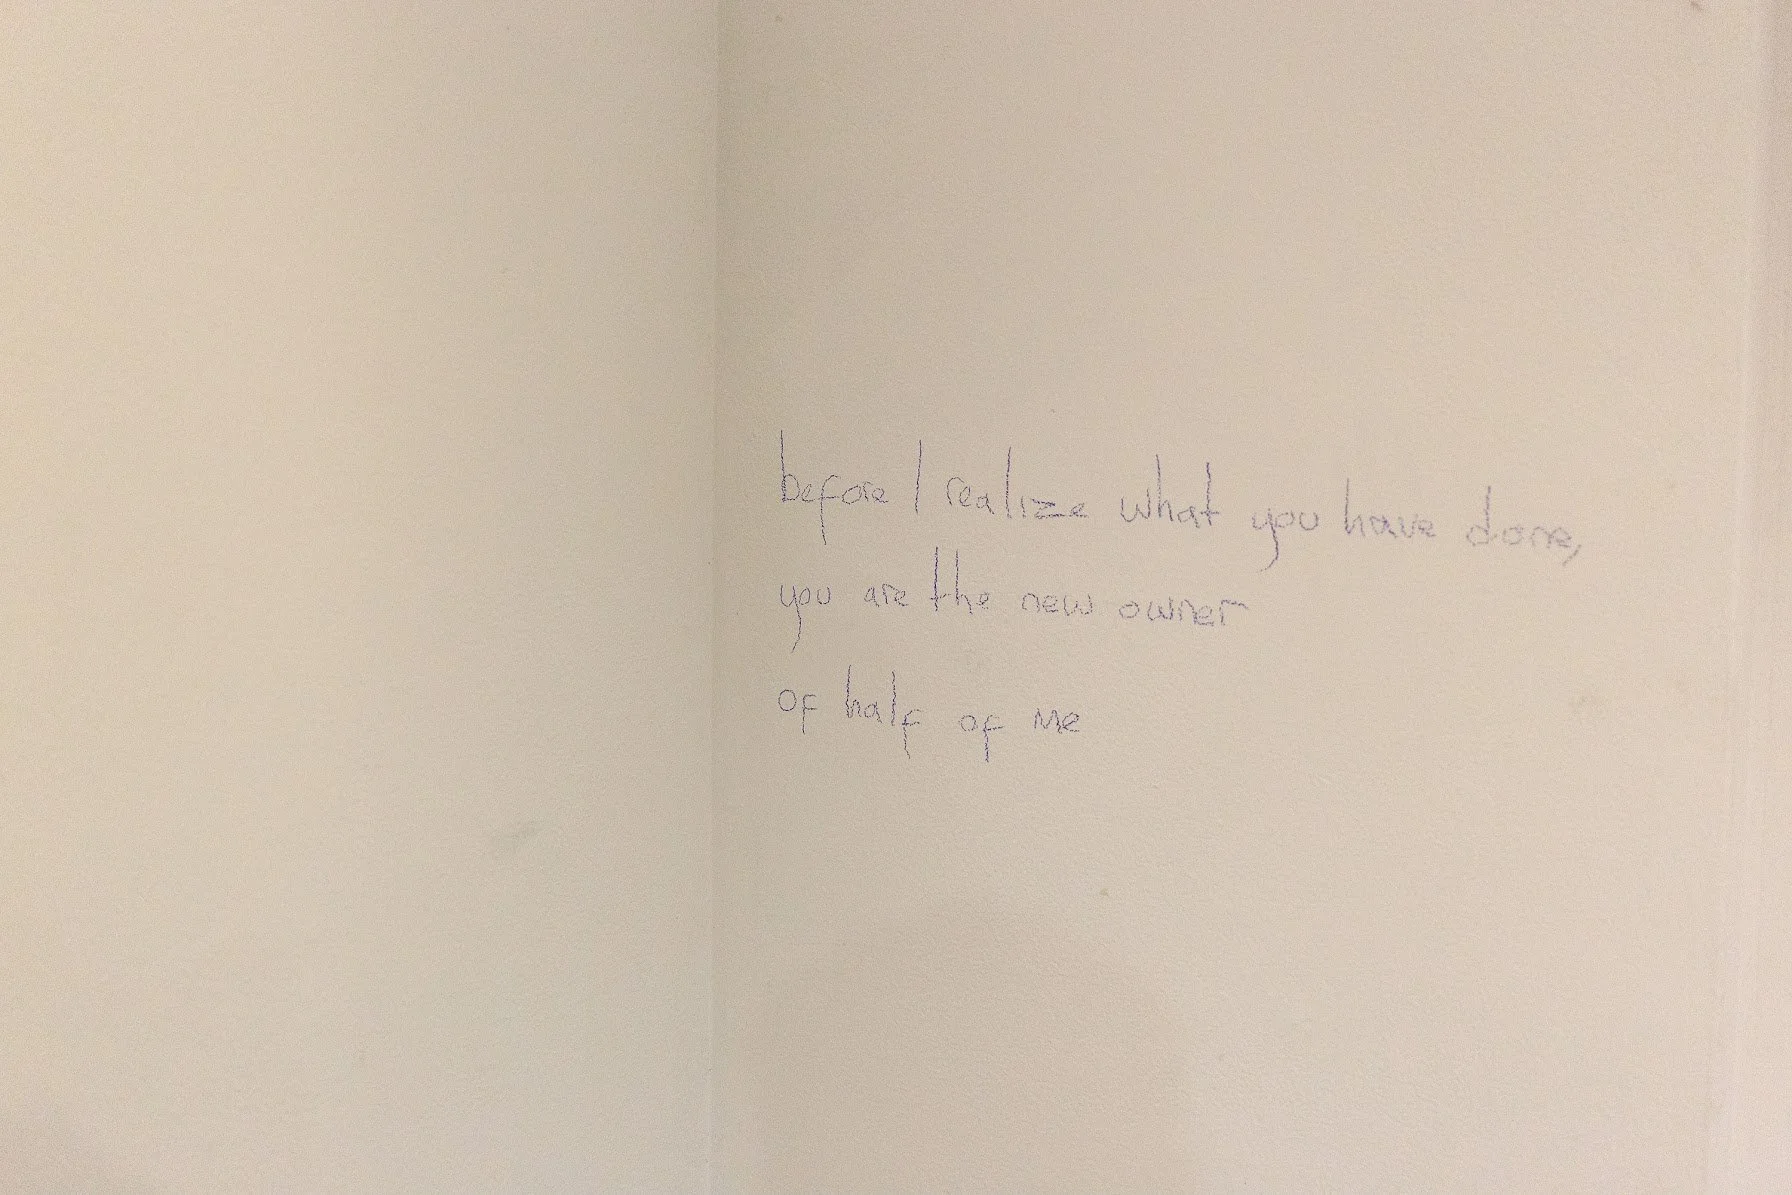 before I realize what you have done,
you are the new owner
of half of me